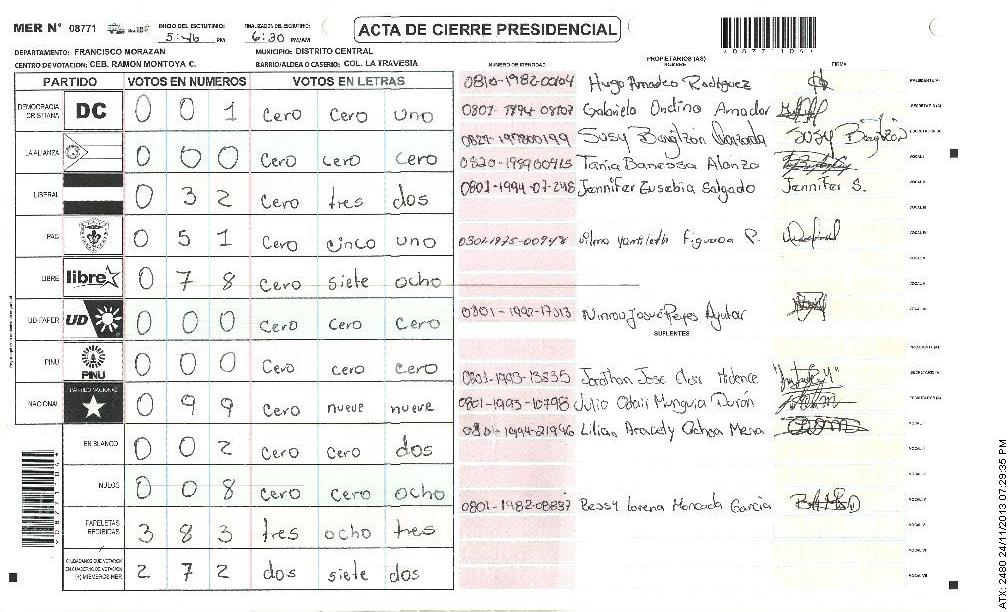 MER N° 08771
INICIO DEL ESCRUTINIO: 5:46 PM
FINALIZACION DEL ESCRUTINIO: 6:30 PM/AM
ACTA DE CIERRE PRESIDENCIAL
DEPARTAMENTO: FRANCISCO MORAZAN
MUNICIPIO: DISTRITO CENTRAL
CENTRO DE VOTACION: CEB. RAMON MONTOYA C.
BARRIO/ALDEA O CASERIO: COL. LA TRAVESIA
PARTIDO VOTOS EN NUMEROS VOTOS EN LETRAS
DEMOCRACIA CRISTIANA DC 0 0 1 cero cero uno
LA ALIANZA 0 0 0 cero cero cero
LIBERAL 0 3 2 cero tres dos
PAC 0 5 1 cero cinco uno
LIBRE libre 0 7 8 cero siete ocho
UD FAPER UD 0 0 0 cero cero cero
PINU PINU 0 0 0 cero cero cero
NACIONAL PARTIDO NACIONAL 0 9 9 cero nueve nueve
EN BLANCO 0 0 2 cero cero dos
NULOS 0 0 8 cero cero ocho
PAPELETAS RECIBIDAS 3 8 3 tres ocho tres
CIUDADANOS QUE VOTARON EN CUADERNO DE VOTACION (+) MIEMBROS MER 2 7 2 dos siete dos
PROPIETARIOS (AS)
NUMERO DE IDENTIDAD NOMBRE FIRMA
0810-1982-00104 Hugo Amadeo Rodriguez PRESIDENTE (A)
Gabriela Ondina Amador SECRETARIO (A)
Susy SUSY
Tania Banessa Alonzo VOCAL I
0801-1994-07248 Jennifer Eusebia Salgado Jennifer S. VOCAL II
VOCAL III
0301-1975-00948 Figueroa P. VOCAL IV
VOCAL V
0801-1992-17313 Josué Reyes Aguilar
SUPLENTES
PRESIDENTE (A)
0801-1993-13835 Jonathan Jose SECRETARIO (A)
0801-1993-10798 Julio Odair Munguia Durón
0801-1994-21946 Lilian Aracely Ochoa Mena VOCAL I
VOCAL II
VOCAL III
0801-1982-08837 Bessy Lorena Moncada Garcia VOCAL IV
VOCAL V
VOCAL VI
VOCAL VII
ATX: 2480 24/11/2013 07:29:35 PM